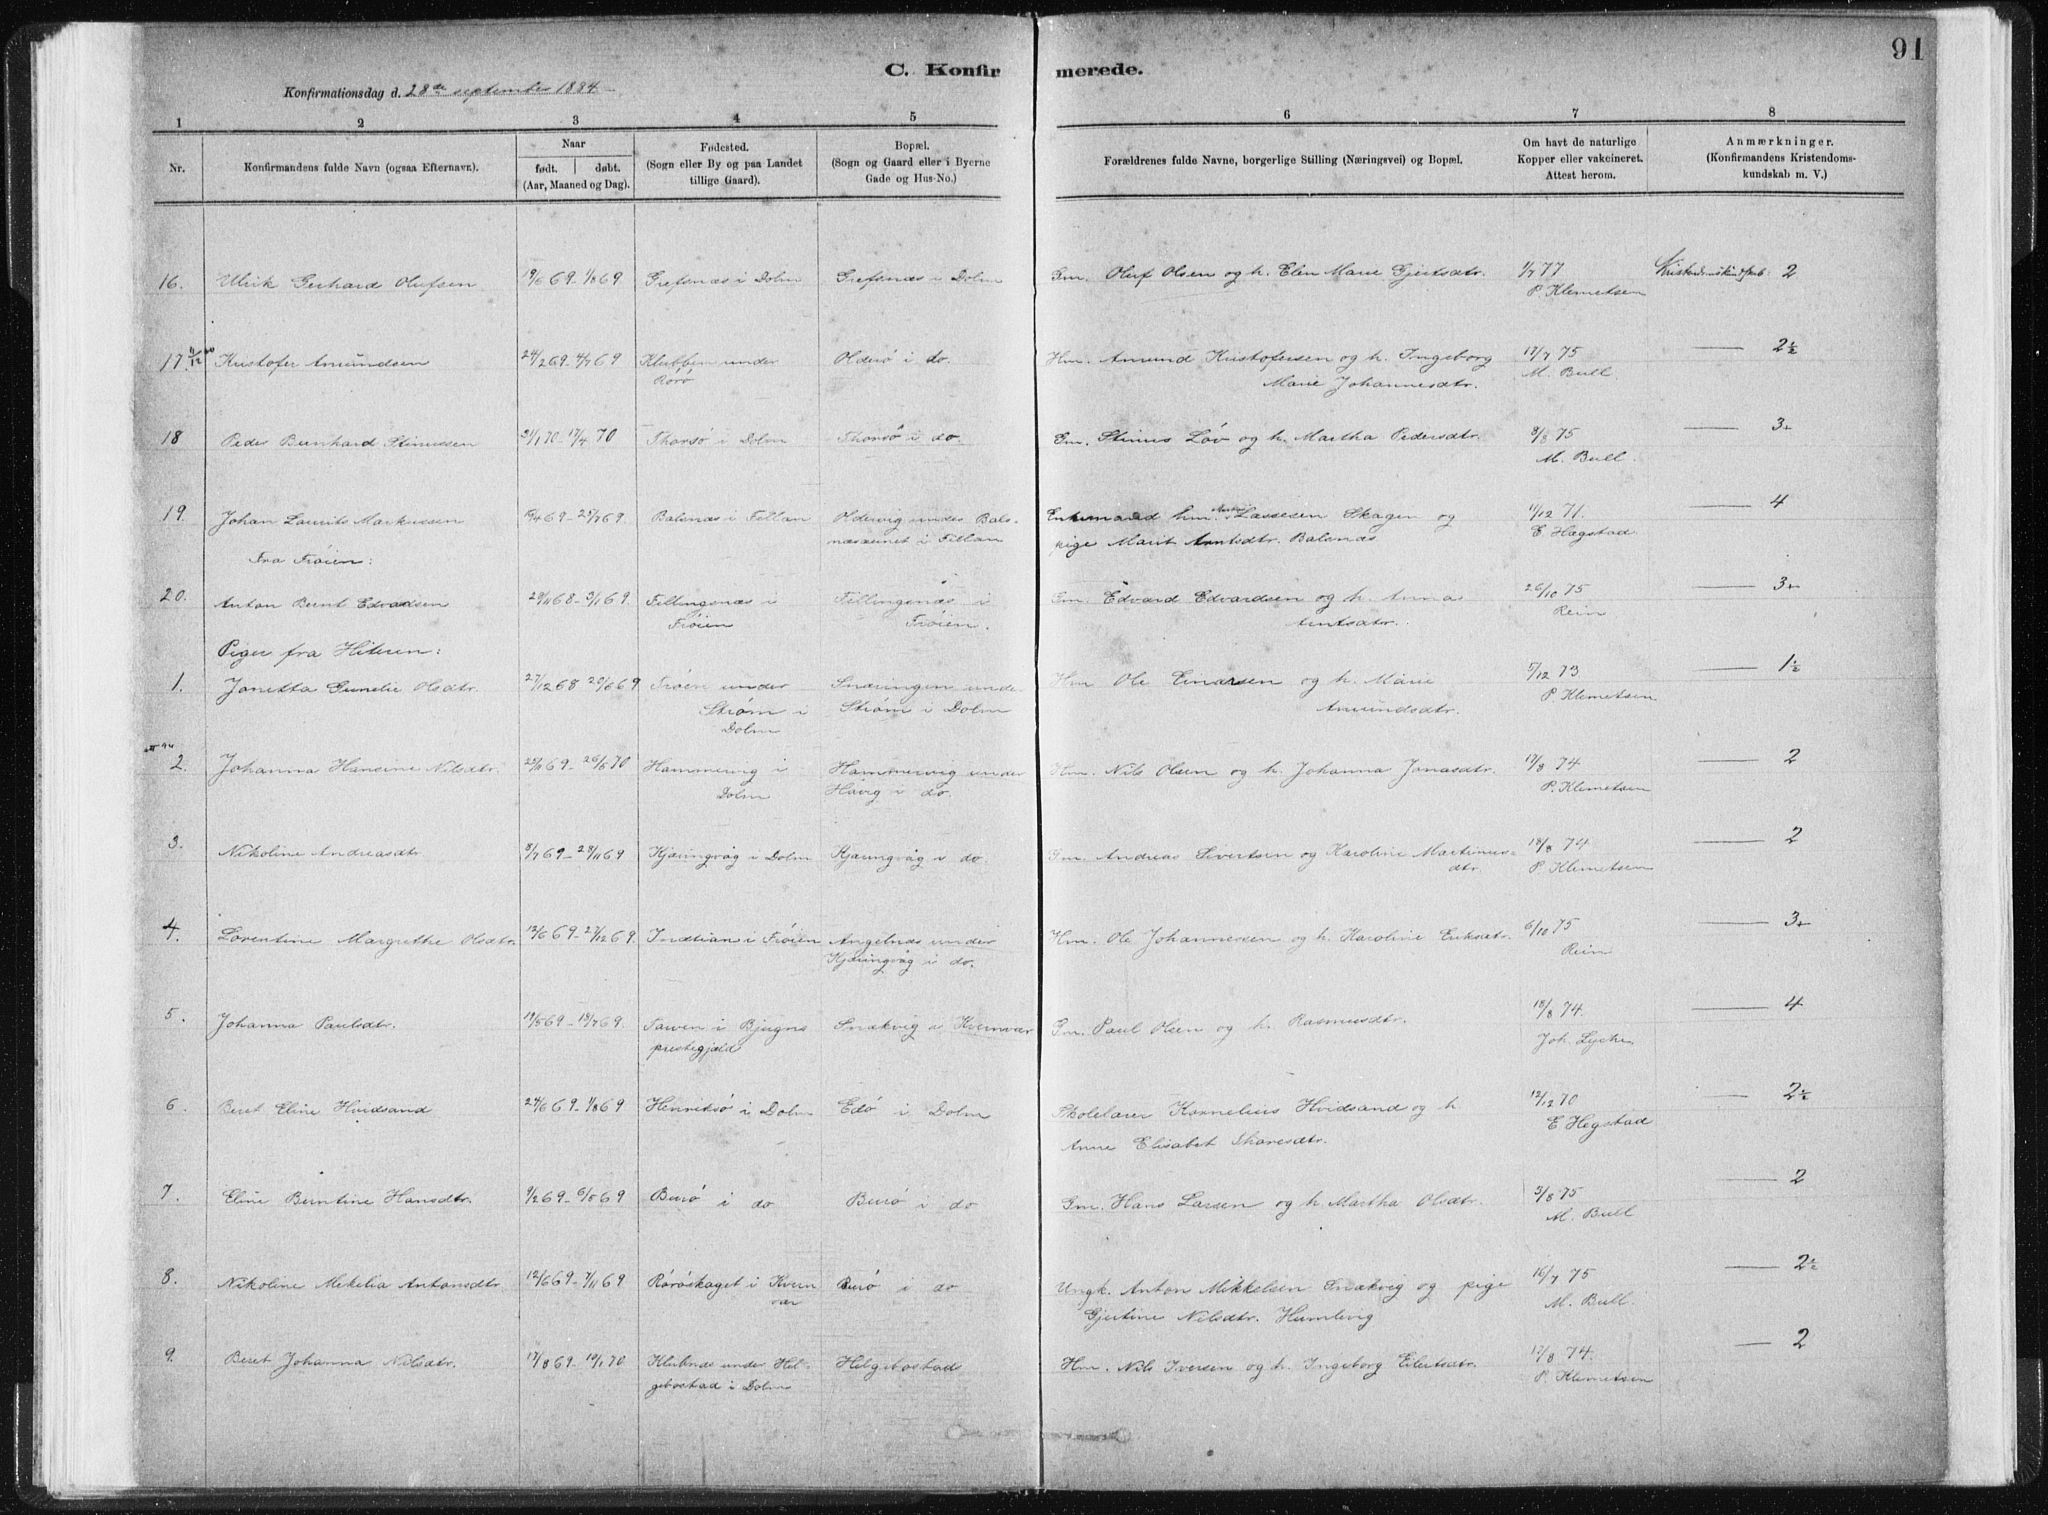 91
C. Konfirmerede.
Konfirmationsdag d. 28de september 1884
1 2 3 4 5 6 7 8
Nr.
Konfirmandens fulde Navn (ogsaa Efternavn).
Naar
født. døbt.
(Aar, Maaned og Dag).
Fødested.
(Sogn eller By og paa Landet
tillige Gaard).
Bopæl.
(Sogn og Gaard eller i Byerne
Gade og Hus-No.)
Forældrenes fulde Navne, borgerlige Stilling (Næringsvei) og Bopæl.
Om havt de naturlige
Kopper eller vakcineret.
Attest herom.
Anmærkninger.
(Konfirmandens Kristendoms-
kundskab m. V.)
16. Ulrik Gerhard Olufsen 19/6 69 - 1/8 69 Grefsnæs i Dolm Grefsnæs i Dolm Gm. Oluf Olsen og h. Elen Marie Gjertsdtr. 1/7 77 Kristendomskundskab: 2
P. Klemetsen
17. Kristofer Amundsen 24/2 69 - 4/7 69 Klubben under Olderø i do. Hm. Amund Kristofersen og h. Ingeborg 17/7 75 2½
Rørø Marie Johannesdtr. M. Bull
18 Peder Bernhard Stinussen 31/1 70 - 17/4 70 Thorsø i Dolm Thorsø i do. Em. Stinus Løv og h. Martha Pedersdtr. 3/8 75 3+
M. Bull.
19. Johan Laurits Markussen 19/4 69 - 25/7 69 Balsnæs i Fillan Oldervig under Bals- Enkemand hm. Lassesen Skagen og 11/12 71. 4
næsaunet i Fillan pige Marit Arntsdtr. Balsnæs E Hægstad
Fra Frøien:
20. Anton Bernt Edvardsen 29/11 68 - 3/1 69. Fillingsnæs i Fillingsnæs i Gm. Edvard Edvardsen og h. Anna 26/10 75 3+
Frøien Frøien. Arntsdtr. Rein
Piger fra Hiteren:
1. Janetta Gunelie Olsdtr. 27/12 68 20/6 69 Trøen under Snæringen unde- Hm Ole Einarsen og h. Marie 5/12 73 1½
Strøm i Strøm i Dolm Amundsdtr. P. Klemetsen
Dolm
2. Johanna Hansine Nilsdtr. 25/11 69 - 26/6 70 Hammervig i Hammervig under Hm. Nils Olsen og h. Johanna Jonasdtr. 17/8 74 2
Dolm Havig i do. P. Klemetsen
3. Nikoline Andreasdtr. 8/7 69 - 28/11 69 Kjæringvåg i Dolm Kjæringvåg i do. Gm. Andreas Sivertsen og Karoline Martinus- 18/8 74 2
dtr. P. Klemetsen
4. Lorentine Margrethe Olsdtr. 13/6 69 - 27/12 69. Inntian i Frøien Angelnæs under Hm. Ole Johannessen og h. Karoline Eriksdtr. 6/10 75 3+
Kjæringvåg i do. Rein
5. Johanna Paulsdtr. 19/5 69 - 18/7 69. Tarven i Bjugns Snækvig i Kvenvær Gm. Paul Olsen og h. Rasmusdtr. 18/8 74. 4
prestegjæld Joh. Lycke
6. Beret Eline Hvidsand 24/6 69 - 1/8 69 Henriksø i Dolm Edø i Dolm Skolelærer Kornelius Hvidsand og h 12/12 70 2½
Anne Elisabet Tharesdtr. E Hegstad
7. Eline Berntine Hansdtr. 9/2 69 - 6/8 69 Burø i do Burø i do Gm. Hans Larsen og h. Martha Olsdtr. 3/8 75 2
M. Bull
8. Nikoline Mekelia Antonsdtr. 12/6 69 - 7/11 69 Rørøskaget i Kven Burø i do Ungk. Anton Mikkelsen Snækvig og pige 16/7 75 2½
vær Gjertine Nilsdtr. Humlevig M. Bull.
9. Beret Johanna Nilsdtr. 17/8 69 - 19/1 70 Klubnæs under Hel- Helgebostads Hm. Nils Iversen og h. Ingeborg Eilertsdtr. 17/8 74. 2
gebostad i Dolm P. Klemetsen